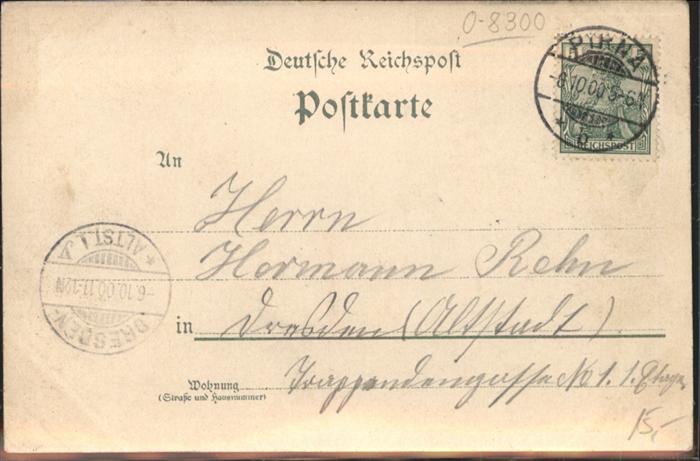 0-8300
Deutsche Reichspost
Postkarte
PIRNA
-6.10.00 5-6N
* b *
REICHSPOST
An
Herrn
Hermann Rehn
in Dresden (Altstadt).
Wohnung
(Straße und Hausnummer)
No 1. 1. Etage
DRESDEN-
-6.10.00.11-12N
* ALTST. 1
15,-